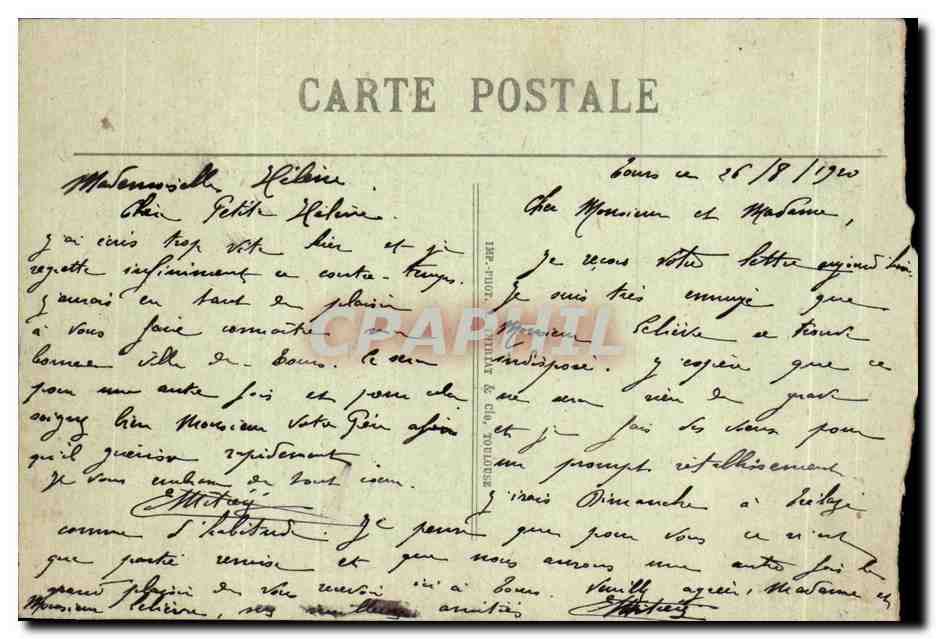 CARTE POSTALE
Mademoiselle Hélène.
Chère Petite Hélène.
J'ai écris trop vite hier et je
regrette infiniment ce contre-temps.
J'aurais eu tant de plaisir
à vous faire connaître ma
bonne ville de Tours. Ce sera
pour une autre fois et pour cela
soignez bien Monsieur Votre Père afin
qu'il guérisse rapidement
Je vous embrasse de tout coeur.
Tours ce 26/8/1920
Cher Monsieur et Madame,
Je reçois votre lettre aujourd'hui.
Je suis très ennuyé que
Monsieur Lelièvre se trouve
indisposé. J'espère que ce
ne sera rien de grave
et je fais des voeux pour
un prompt rétablissement
J'irais Dimanche à
comme d'habitude. Je pense que pour vous ce n'est
que partie remise et que nous aurons une autre fois le
grand plaisir de vous recevoir ici à Tours. Veuillez agréer, Madame et
Monsieur Lelièvre, mes meilleures amitiés
IMP.-PHOT. THIRIAT & Cie, TOULOUSE
CPAPHIL